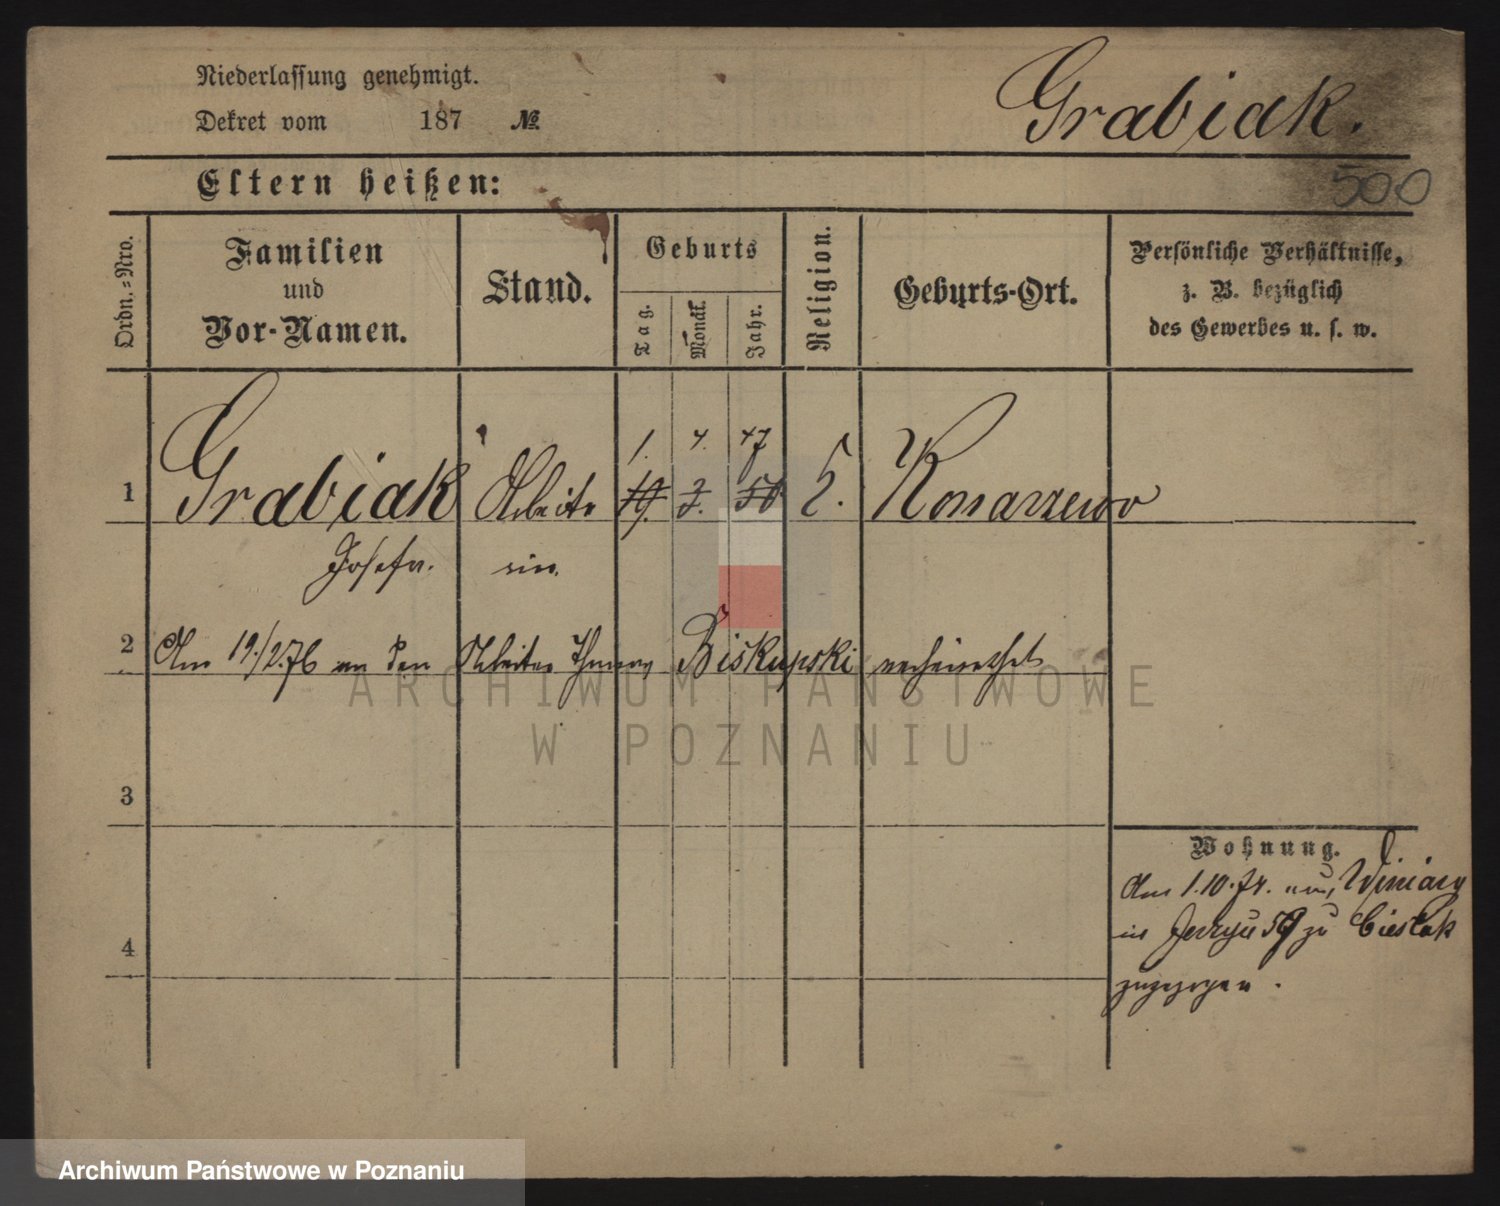 Niederlassung genehmigt.
Dekret vom 187 №
Grabiak.
Eltern heißen:
500
Ordn.-Nro.
Familien
und
Vor-Namen.
Stand.
Geburts
Tag.
Monat.
Jahr.
Religion.
Geburts-Ort.
Persönliche Verhältnisse,
z. B. bezüglich
des Gewerbes u. s. w.
1. 4. 47
1 Grabiak Arbeite 19. 3. 50 Konarzewo
Josefa. rin.
2 Am 19./2.76 an den Arbeiter Biskupski verheirathet
ARCHIWUM PAŃSTWOWE
W POZNANIU
3
4
Wohnung.
Am 1.10.74. Winiary
in 59 zu Cieslak
zugezogen.
Archiwum Państwowe w Poznaniu